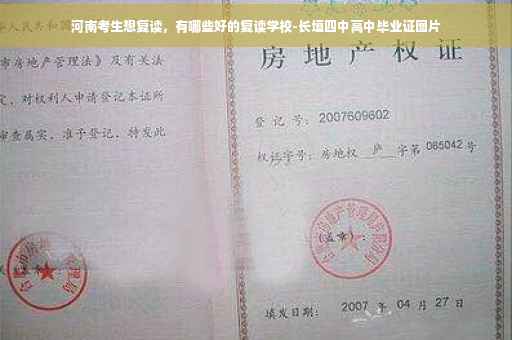 河南考生想复读，有哪些好的复读学校-长垣四中高中毕业证图片
华人民共和国
市房地产管理法》及有关法
定，对权利人申请登记本证所
审查属实，准予登记，特发此
房地产权证
登 记 号：2007609602
权证字号：房地权 庐 字第 065042 号
(盖章)：
填发日期： 2007 年 04 月 27 日